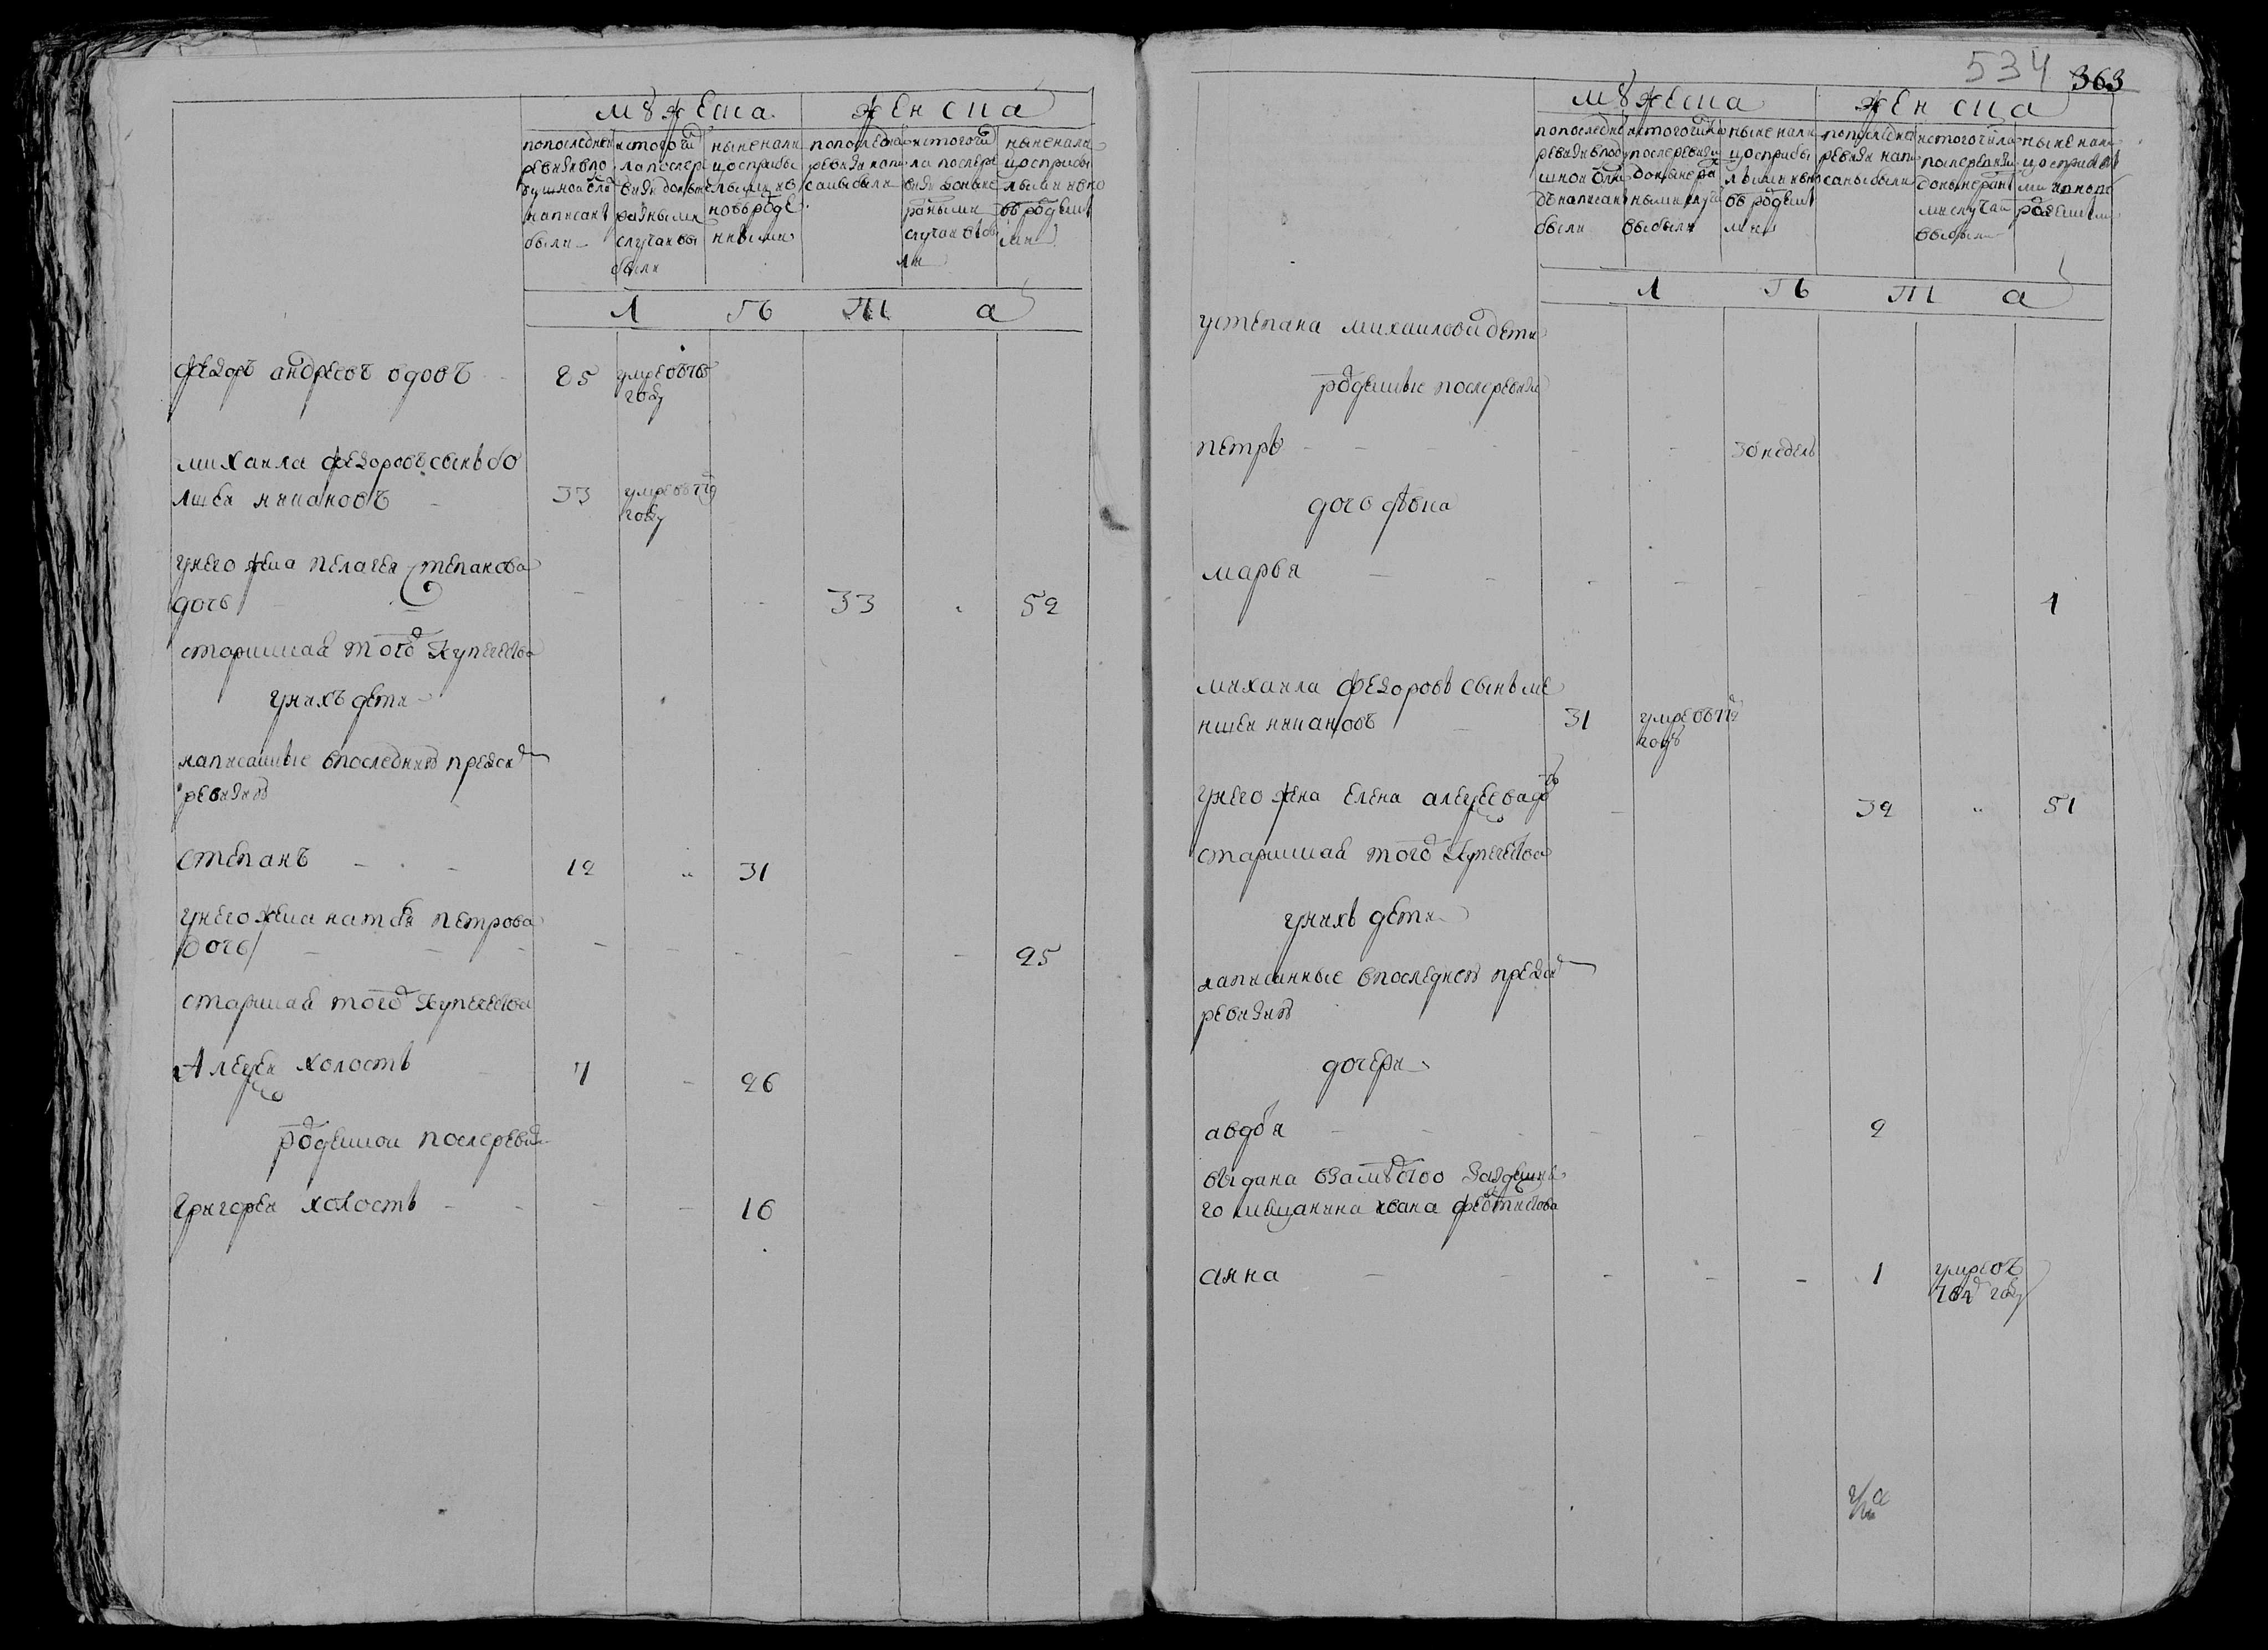 мужеска
женска
по последней
ревизии в по
душной окла
написаны
были
ис того чи
ла после ре
визии до ныне
разными
случаи вы
были
ныне нали
цо с прибы
лыми и в
новь рожде
ними
по последней
ревизии напи
саны были
ис того чи
ла после ре
визии до ныне
разными
случаи выбы
ли
ныне нали
цо с прибы
лыми и вно
вь рожденны
ми
л е т а
федоръ андреевъ вдовъ 85 умре въ 765
году
михаила федоровъ сынъ бо
лшеи
33 умре въ 772
году
у него жена пелагея степанова
дочь 33 52
старинная того ж купечества
у них дети
написанные в последнюю пред сим
ревизию
степанъ 12 31
у него жена наталья петрова
дочь 25
старинная того ж купечества
Алексеи холостъ 7 26
рожденнои после ревизии
Григореи холостъ 16
534 363
мужеска
женска
по последней
ревизии в поду
шном окла
де написаны
были
ис того числа
после ревизии
до ныне раз
ными случаи
выбыли
ныне нали
цо с прибы
лыми и вно
вь рожденны
ми
по последней
ревизии напи
саны были
ис того числа
после ревизии
до ныне разны
ми случаи
выбыли
ныне нали
цо с прибылы
ми и вновь
рожденными
л е т а
у степана михаилова дети
рожденные после ревизии
петръ 30 недель
дочь ево
марья 1
михаила федоровъ сынъ ме
ншеи
31 умре въ 772
году
у него жена елена алексеева дочь 32 51
старинная того ж купечества
у них дети
написанные в последнею пред сим
ревизию
дочери
авдотья 2
выдана в замужество
го мещанина ивана феоктистова
анна 1 умре въ
764 году